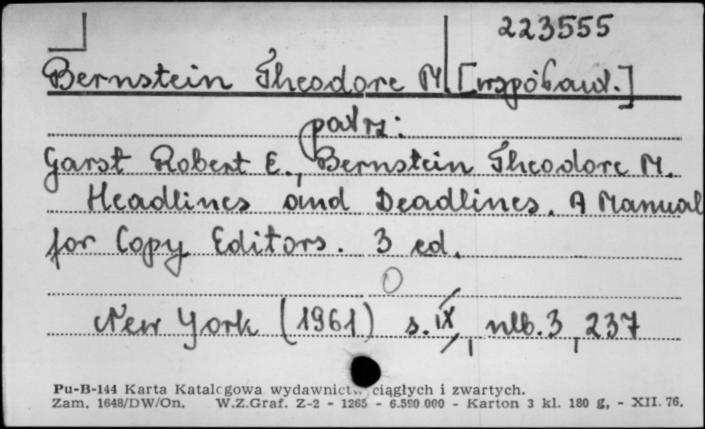 223555
Bernstein Theodore M [współaut.]
patrz:
Garst Robert E., Bernstein Theodore M.
Headlines and Deadlines. A Manual
for Copy Editors. 3 ed.
New York (1961) s. IX, nlb. 3, 237
Pu-B-144 Karta Katalogowa wydawnictw ciągłych i zwartych.
Zam. 1648/DW/On. W.Z.Graf. Z-2 - 1265 - 6.590.000 - Karton 3 kl. 180 g, - XII. 76.